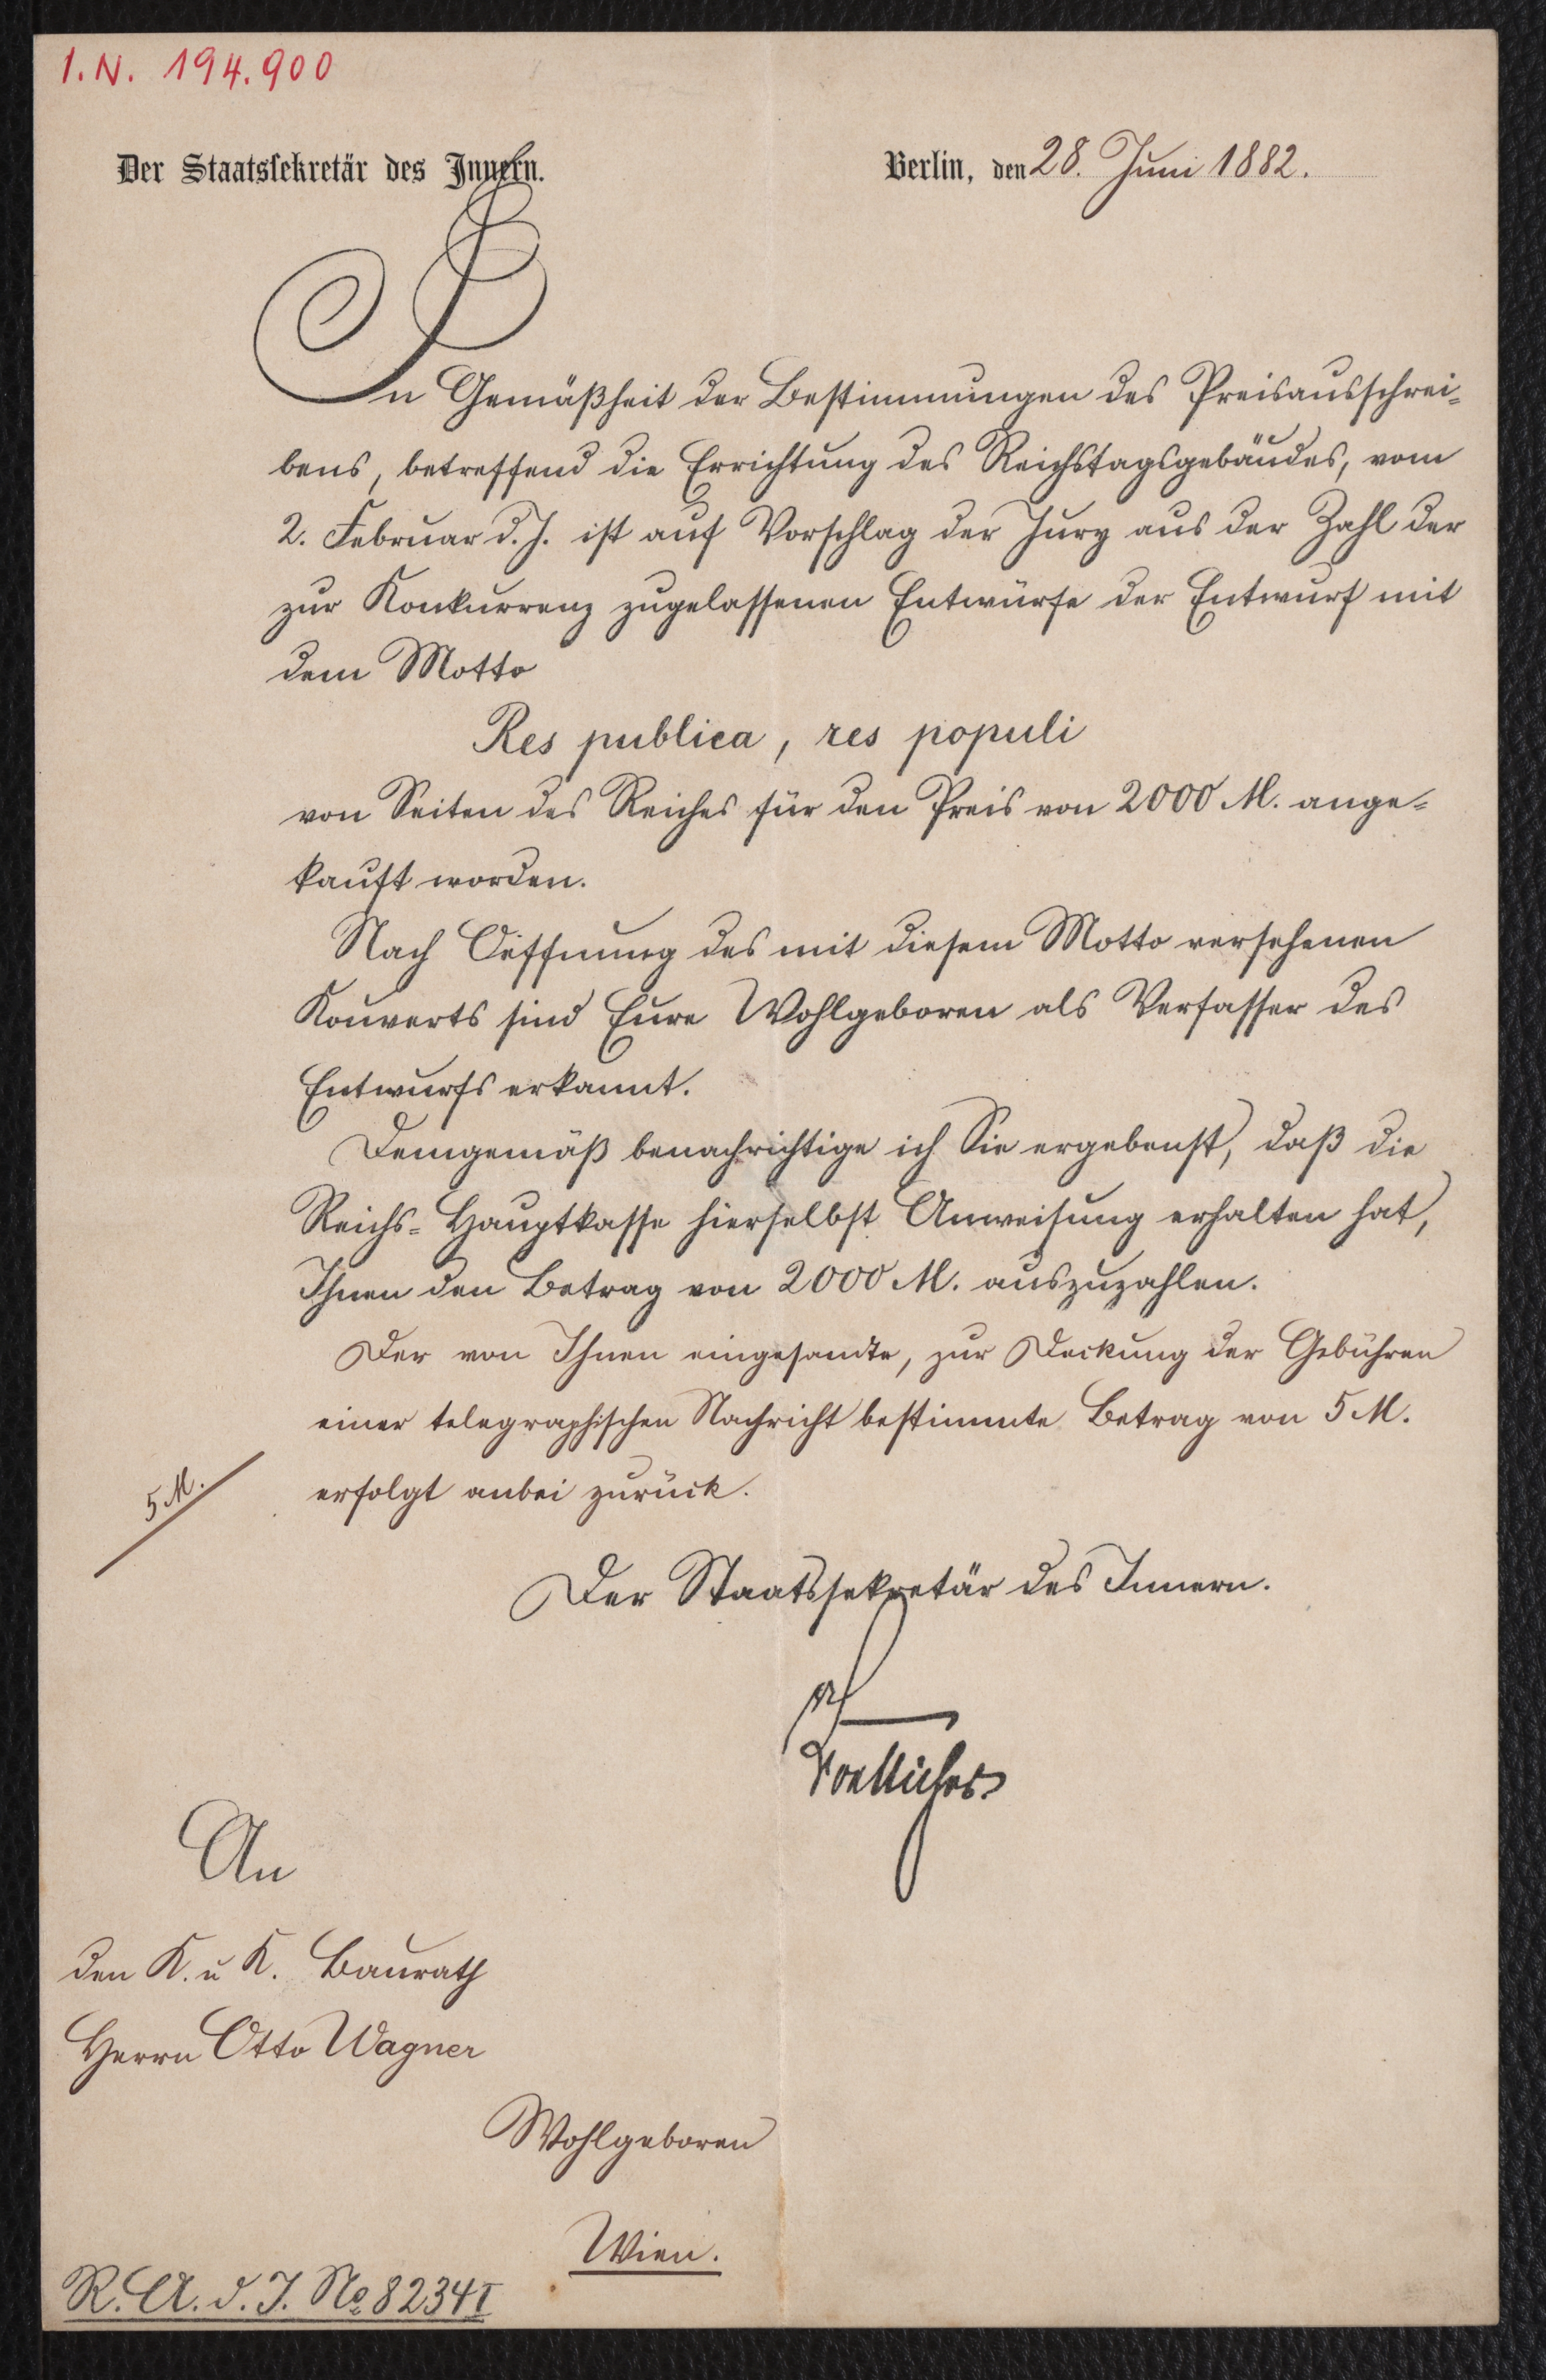 I.N. 194.900
Der Staatssekretär des Innern.
Berlin, den 28. Juni 1882.
In Gemäßheit der Bestimmungen des Preisausschrei-
bens, betreffend die Errichtung des Reichstagsgebäudes, vom
2. Februar d. J. ist auf Vorschlag der Jury aus der Zahl der
zur Konkurrenz zugelassenen Entwürfe der Entwurf mit
dem Motto
Res publica, res populi
von Seiten des Reiches für den Preis von 2000 M. ange-
kauft worden.
Nach Oeffnung des mit diesem Motto versehenen
Kouverts sind Eure Wohlgeboren als Verfasser des
Entwurfs erkannt.
Demgemäß benachrichtige ich Sie ergebenst, daß die
Reichs-Hauptkasse hierselbst Anweisung erhalten hat,
Ihnen den Betrag von 2000 M. auszuzahlen.
Der von Ihnen eingesandte, zur Deckung der Gebühren
einer telegraphischen Nachricht bestimmte Betrag von 5 M.
5 M.
erfolgt anbei zurück.
Der Staatssekretär des Innern.
Boetticher
An
den K. u K. Baurath
Herrn Otto Wagner
Wohlgeboren
Wien.
R. A. d. J. No 8234 I